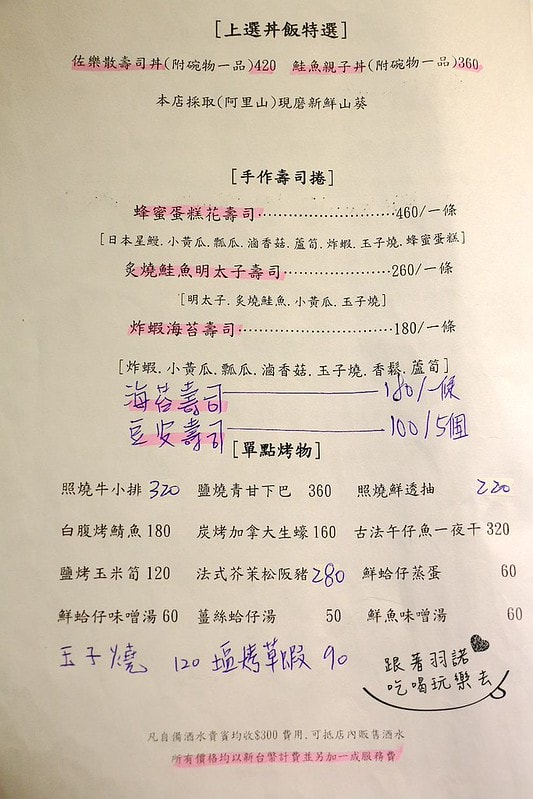 [上選丼飯特選]
佐樂散壽司丼(附碗物一品)420 鮭魚親子丼(附碗物一品)360
本店採取(阿里山)現磨新鮮山葵
[手作壽司捲]
蜂蜜蛋糕花壽司..........................460/一條
[日本星鰻.小黃瓜.瓢瓜.滷香菇.蘆筍.炸蝦.玉子燒.蜂蜜蛋糕]
炙燒鮭魚明太子壽司.....................260/一條
[明太子.炙燒鮭魚.小黃瓜.玉子燒]
炸蝦海苔壽司..............................180/一條
[炸蝦.小黃瓜.瓢瓜.滷香菇.玉子燒.香鬆.蘆筍]
海苔壽司 180/一條
豆皮壽司 100/5個
[單點烤物]
照燒牛小排 320 鹽燒青甘下巴 360 照燒鮮透抽 220
白腹烤鯖魚 180 炭烤加拿大生蠔 160 古法午仔魚一夜干 320
鹽烤玉米筍 120 法式芥茉松阪豬 280 鮮蛤仔蒸蛋 60
鮮蛤仔味噌湯 60 薑絲蛤仔湯 50 鮮魚味噌湯 60
玉子燒 120 塩烤草蝦 90
跟著羽諾
吃喝玩樂去
凡自備酒水貴賓均收$300費用.可抵店內販售酒水
所有價格均以新台幣計費並另加一成服務費